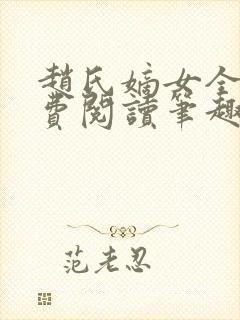 趙氏嫡女全
費閱讀筆趣
范老忍